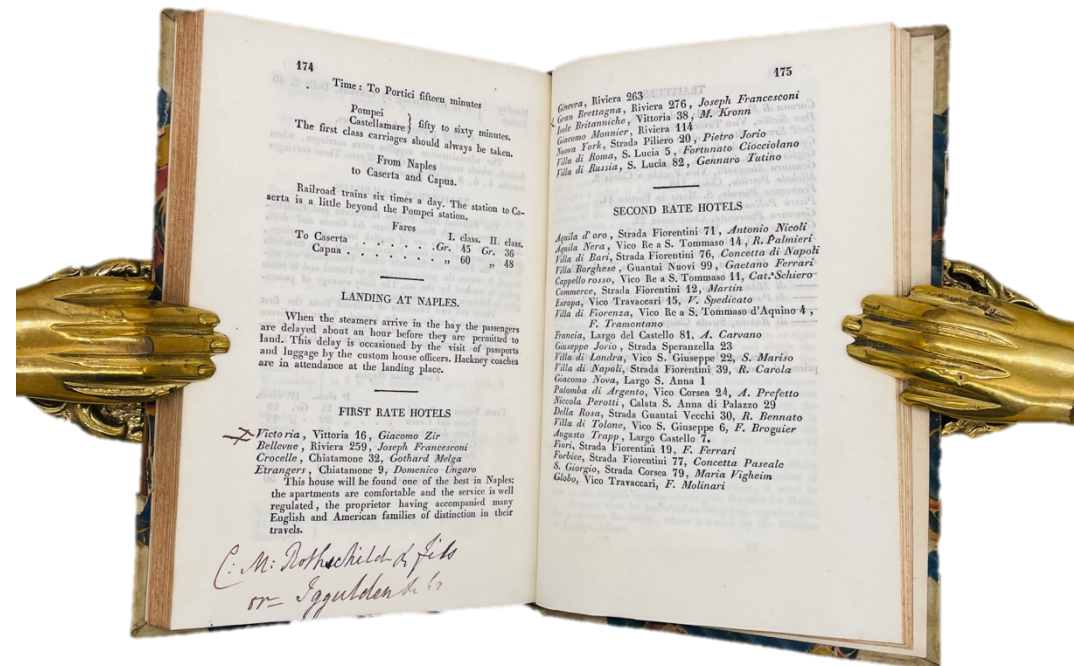 174
Time: To Portici fifteen minutes
Pompei
Castellamare } fifty to sixty minutes.
The first class carriages should always be taken.
From Naples
to Caserta and Capua.
Railroad trains six times a day. The station to Ca-
serta is a little beyond the Pompei station.
Fares
I. class. II. class.
To Caserta . . . . . . Gr. 45 Gr. 36
Capua . . . . . . . „ 60 „ 48
LANDING AT NAPLES.
When the steamers arrive in the bay the passengers
are delayed about an hour before they are permitted to
land. This delay is occasioned by the visit of passports
and luggage by the custom house officers. Hackney coaches
are in attendance at the landing place.
FIRST RATE HOTELS
Victoria, Vittoria 16, Giacomo Zir
Bellevue, Riviera 259, Joseph Francesconi
Crocelle, Chiatamone 32, Gothard Melga
Etrangers, Chiatamone 9, Domenico Ungaro
This house will be found one of the best in Naples;
the apartments are comfortable and the service is well
regulated, the proprietor having accompanied many
English and American families of distinction in their
travels.
C: M: Rothschild & fils
or Iggulden &
175
Ginevra, Riviera 263
Gran Brettagna, Riviera 276, Joseph Francesconi
Isole Britanniche, Vittoria 38, M. Kronn
Giacomo Monnier, Riviera 114
Nuova York, Strada Piliero 20, Pietro Jorio
Villa di Roma, S. Lucia 5, Fortunato Ciocciolano
Villa di Russia, S. Lucia 82, Gennaro Tutino
SECOND RATE HOTELS
Aquila d'oro, Strada Fiorentini 71, Antonio Nicoli
Aquila Nera, Vico Re a S. Tommaso 14, R. Palmieri
Villa di Bari, Strada Fiorentini 76, Concetta di Napoli
Villa Borghese, Guantai Nuovi 99, Gaetano Ferrari
Cappello rosso, Vico Re a S. Tommaso 11, Cat.a Schiero
Commerce, Strada Fiorentini 12, Martin
Europa, Vico Travaccari 15, V. Spedicato
Villa di Fiorenza, Vico Re a S. Tommaso d'Aquino 4,
F. Tramontano
Francia, Largo del Castello 81, A. Carvano
Giuseppe Jorio, Strada Speranzella 23
Villa di Londra, Vico S. Giuseppe 22, S. Mariso
Villa di Napoli, Strada Fiorentini 39, R. Carola
Giacomo Nova, Largo S. Anna 1
Palomba di Argento, Vico Corsea 24, A. Prefetto
Niccola Perotti, Calata S. Anna di Palazzo 29
Della Rosa, Strada Guantai Vecchi 30, R. Bennato
Villa di Tolone, Vico S. Giuseppe 6, F. Broguier
Augusto Trapp, Largo Castello 7.
Fiori, Strada Fiorentini 19, F. Ferrari
Forbice, Strada Fiorentini 77, Concetta Paseale
S. Giorgio, Strada Corsea 79, Maria Vigheim
Globo, Vico Travaccari, F. Molinari